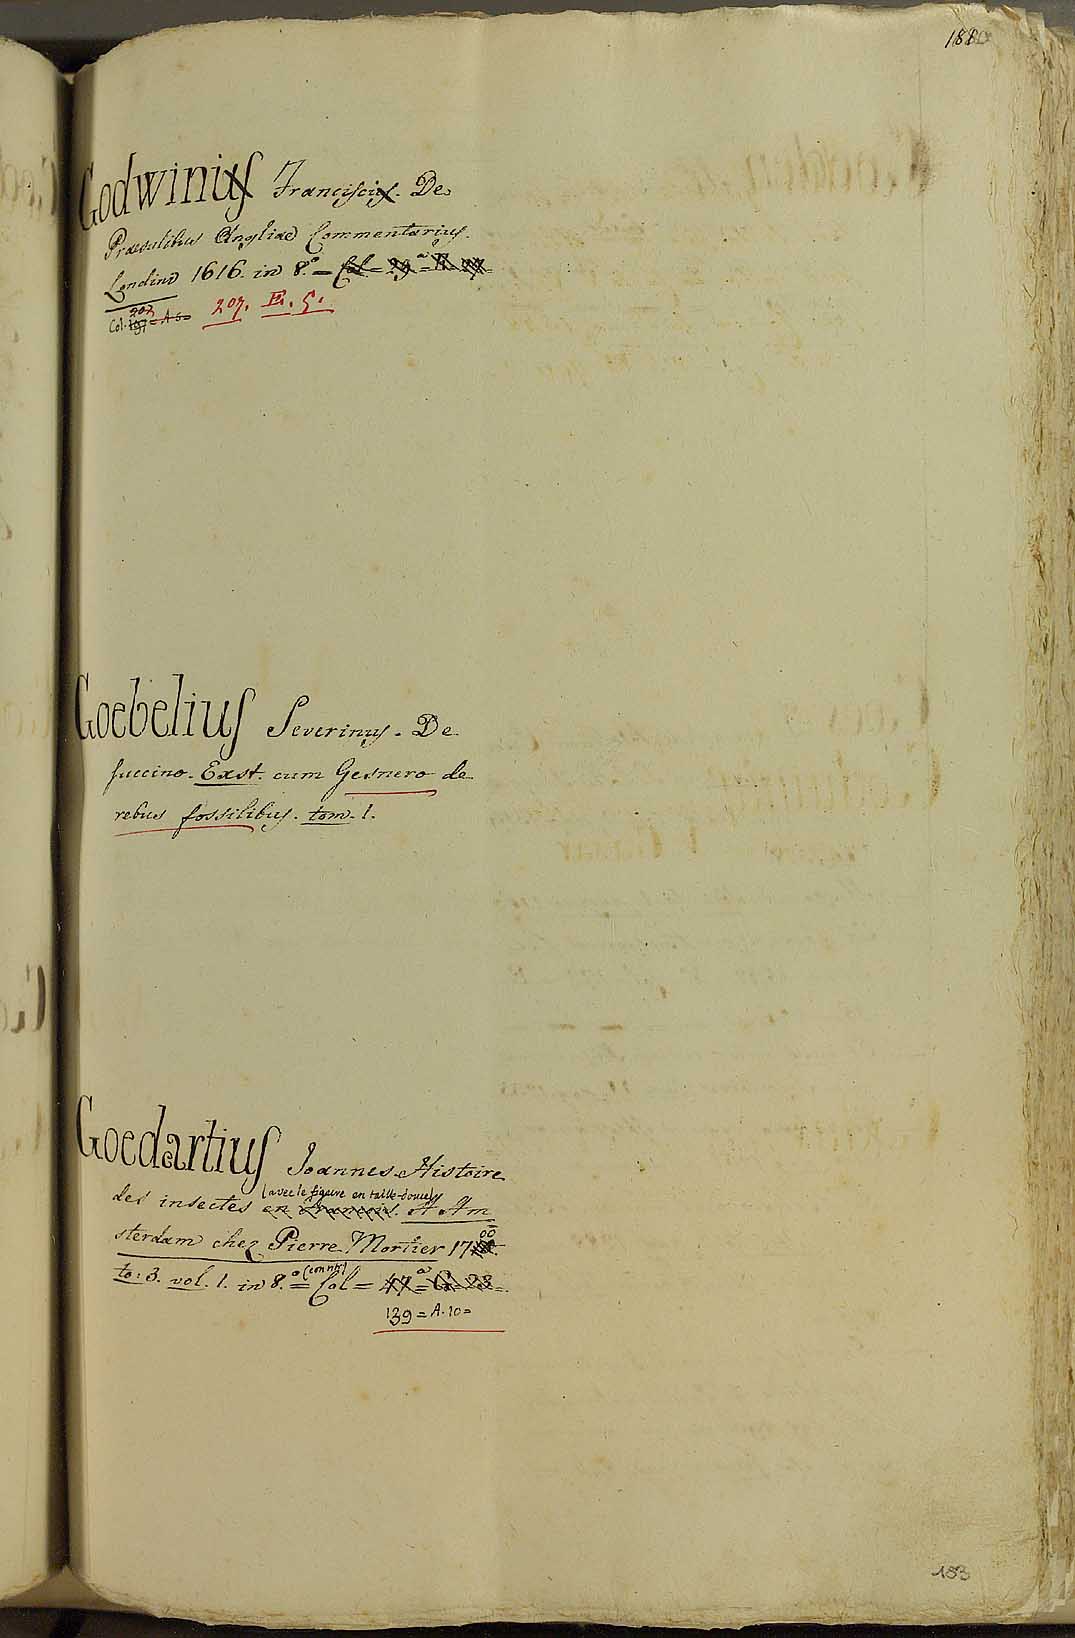 188
Godwinius Franciscus. De
Praesulibus Angliae Commentarius.
Londini 1616. in 8.° = Col = 29ª =
Col. 202 = A 6 = 207. E. 5.
Goebelius Severinus. De
succino. Exst. cum Gesnero de
rebus fossilibus. tom. 1.
Goedartius Joannes. Histoire
(avec le figure en taille-douce)
des insectes en Francois. A Am
sterdam chez Pierre Mortier 1700
to: 3. vol. 1. in 8.° = Col = 47ª = G. 28 =
139 = A. 10 =
183